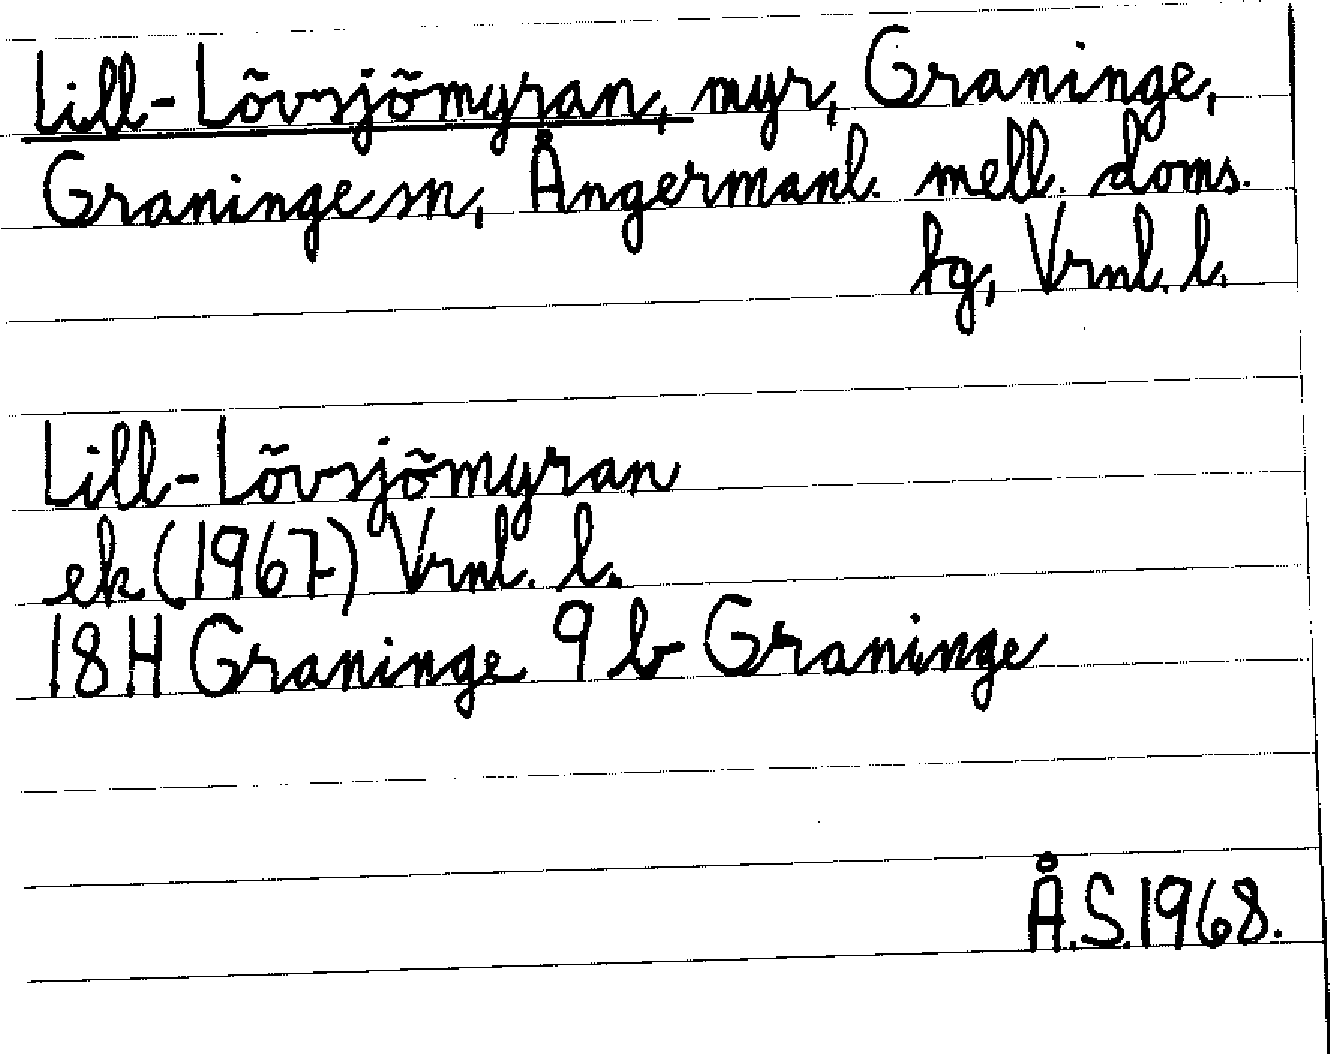 Lill-Lövsjömyran, myr, Graninge,
Graninge sn, Ångermanl. mell. doms.
hg, Vrnl. l.
Lill-Lövsjömyran
ek (1967) Vrnl. l.
18H Graninge 9 b Graninge
Å.S.1968.